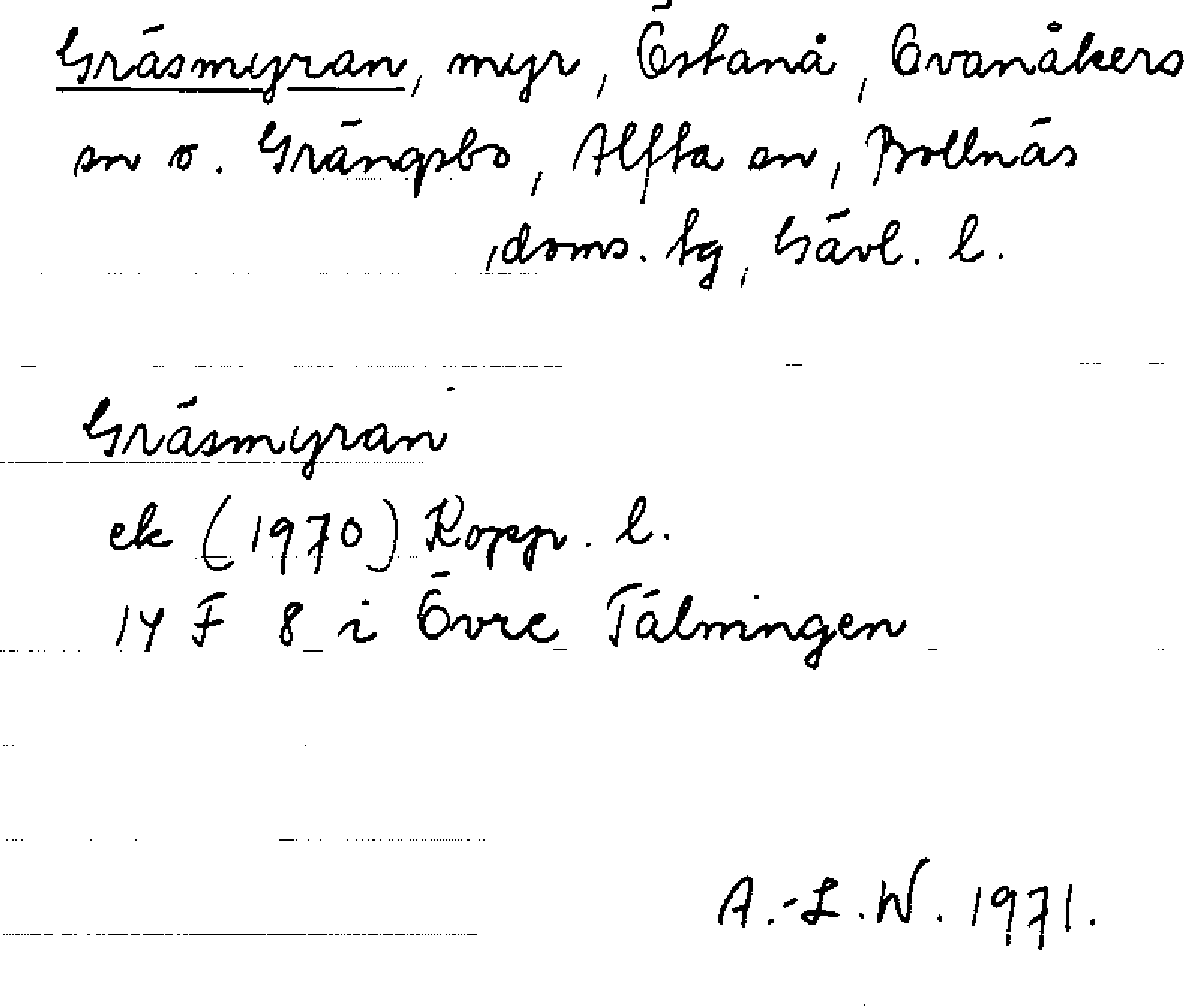 Gräsmyran, myr, Östanå, Ovanåkers
sn o. Grängsbo, Alfta sn, Bollnäs
doms. tg, Gävl. l.
Gräsmyran
ek (1970) Kopp. l.
14 F 8 i Övre Tälningen
A.-L.W. 1971.